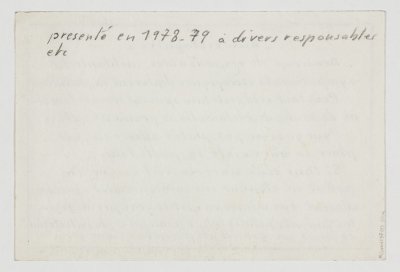 presenté en 1978-79 à divers responsables
etc